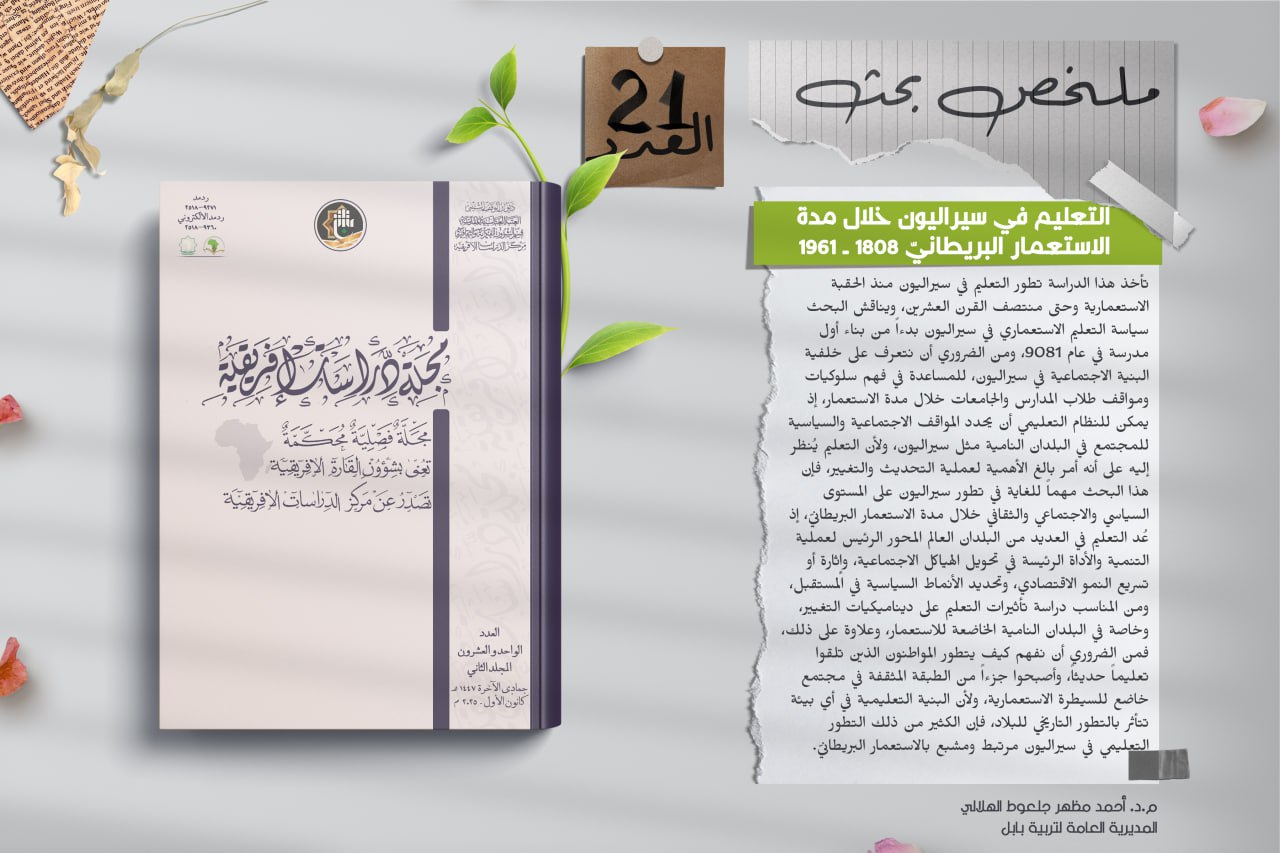 ملخص بحث
21
العدد
التعليم في سيراليون خلال مدة
الاستعمار البريطانيّ 1808 ـ 1961
تأخذ هذا الدراسة تطور التعليم في سيراليون منذ الحقبة
الاستعمارية وحتى منتصف القرن العشرين، ويناقش البحث
سياسة التعليم الاستعماري في سيراليون بدءاً من بناء أول
مدرسة في عام 9081، ومن الضروري أن نتعرف على خلفية
البنية الاجتماعية في سيراليون، للمساعدة في فهم سلوكيات
ومواقف طلاب المدارس والجامعات خلال مدة الاستعمار، إذ
يمكن للنظام التعليمي أن يحدد المواقف الاجتماعية والسياسية
للمجتمع في البلدان النامية مثل سيراليون، ولأن التعليم يُنظر
إليه على أنه أمر بالغ الأهمية لعملية التحديث والتغيير، فإن
هذا البحث مهماً للغاية في تطور سيراليون على المستوى
السياسي والاجتماعي والثقافي خلال مدة الاستعمار البريطانيّ، إذ
عُد التعليم في العديد من البلدان العالم المحور الرئيس لعملية
التنمية والأداة الرئيسة في تحويل الهياكل الاجتماعية، وإثارة أو
تسريع النمو الاقتصادي، وتحديد الأنماط السياسية في المستقبل،
ومن المناسب دراسة تأثيرات التعليم على ديناميكيات التغيير،
وخاصة في البلدان النامية الخاضعة للاستعمار، وعلاوة على ذلك،
فمن الضروري أن نفهم كيف يتطور المواطنون الذين تلقوا
تعليماً حديثاً، وأصبحوا جزءاً من الطبقة المثقفة في مجتمع
خاضع للسيطرة الاستعمارية، ولأن البنية التعليمية في أي بيئة
تتأثر بالتطور التاريخي للبلاد، فإن الكثير من ذلك التطور
التعليمي في سيراليون مرتبط ومشبع بالاستعمار البريطانيّ.
م.د. أحمد مظهر جلعوط الهلالي
المديرية العامة لتربية بابل
ردمد
٢٥١٨-٩٢٧١
ردمد الالكتروني
٢٥١٨-٩٣٦٠
ديوان الوقف الشيعي
العتبة العباسية المقدسة
مركز الدراسات الافريقية
مجلة دراسات إفريقية
مجلة فصلية محكمة
تعنى بشؤون القارة الإفريقية
تصدر عن مركز الدراسات الإفريقية
العدد
الواحد والعشرون
المجلد الثاني
جمادى الآخرة ١٤٤٧ هـ
كانون الأول - ٢٠٢٥ م